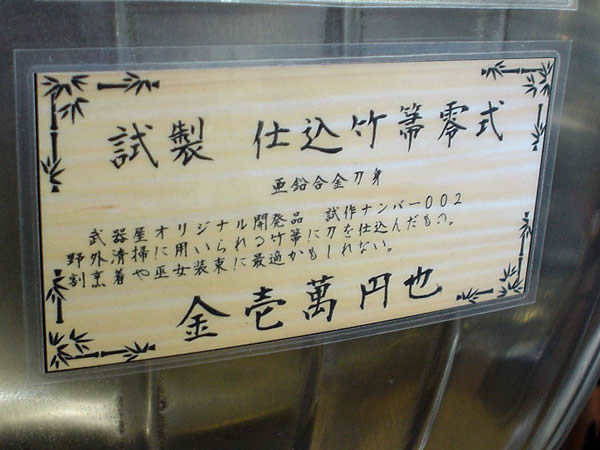 試製 仕込竹箒零式
亜鉛合金刀身
武器屋オリジナル開発品 試作ナンバー002
野外清掃に用いられる竹箒に刀を仕込んだもの。
割烹着や巫女装束に最適かもしれない。
金壱萬円也